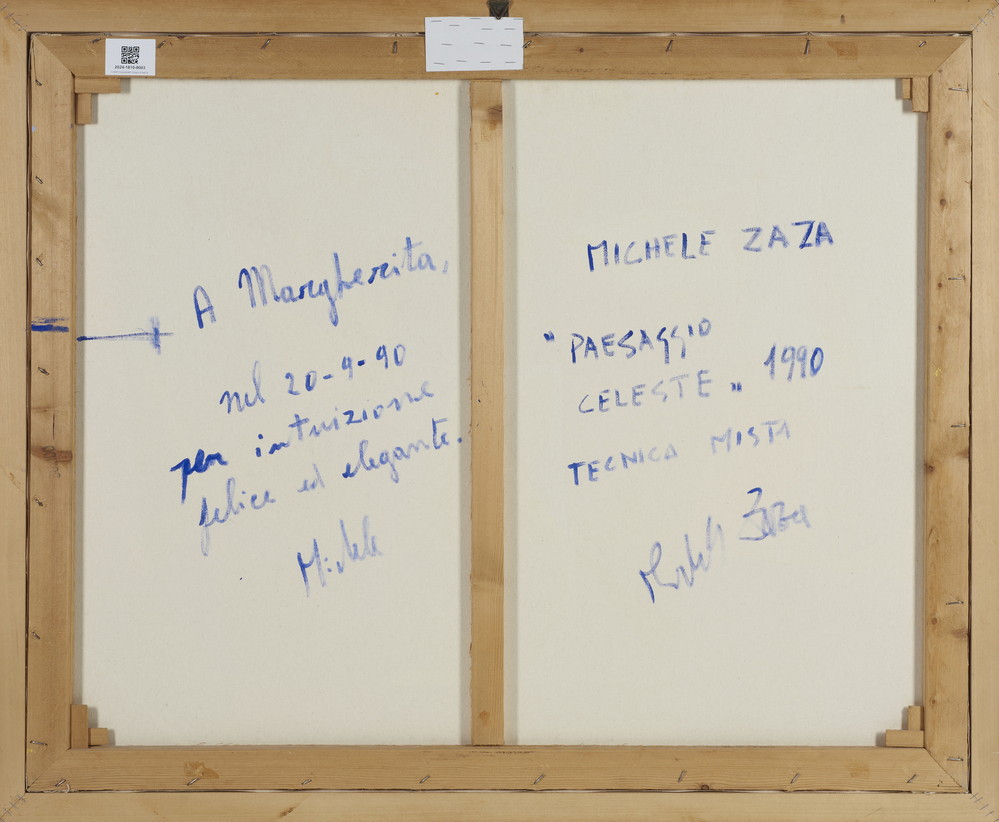 2024-1819-0003
A Margherita,
nel 20-9-90
per intuizione
felice ed elegante.
Michele
MICHELE ZAZA
"PAESAGGIO
CELESTE" 1990
TECNICA MISTA
Michele Zaza